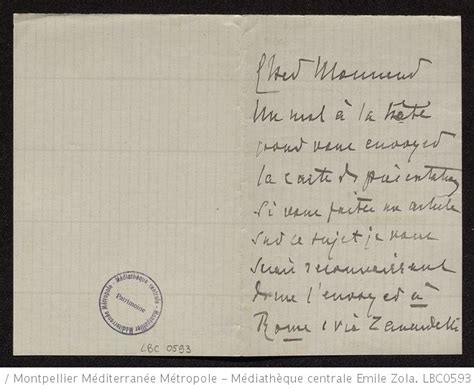 Cher Monsieur
Un mot à la hâte
pour vous envoyer
la carte de présentation
si vous faites un article
sur ce sujet je vous
serais reconnaissant
de me l'envoyer à
Rome 1 via Zanardelli
Montpellier Méditerranée Métropole - Médiathèque centrale
Patrimoine
LBC 0593
/ Montpellier Méditerranée Métropole - Médiathèque centrale Emile Zola. LBC0593